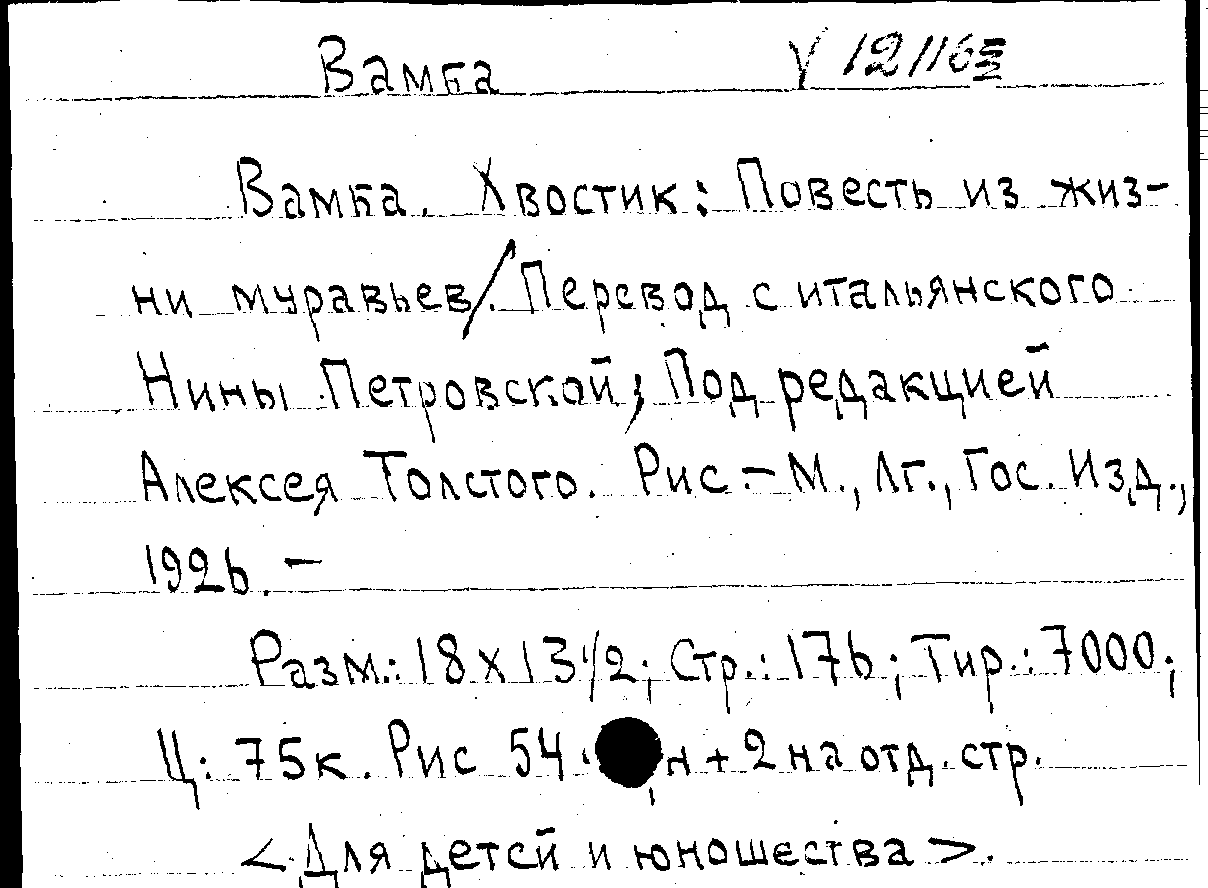 Вамба V 12116
Вамба. Хвостик: Повесть из жиз-
ни муравьев/. Перевод с итальянского
Нины Петровской; Под редакцией
Алексея Толстого. Рис. – М., Лг., Гос. Изд.,
1926. –
Разм.: 18 х 13 1/2; Стр.: 176; Тир.: 7000;
Ц: 75к. Рис 54 + 2 на отд. стр.
<Для детей и юношества>.